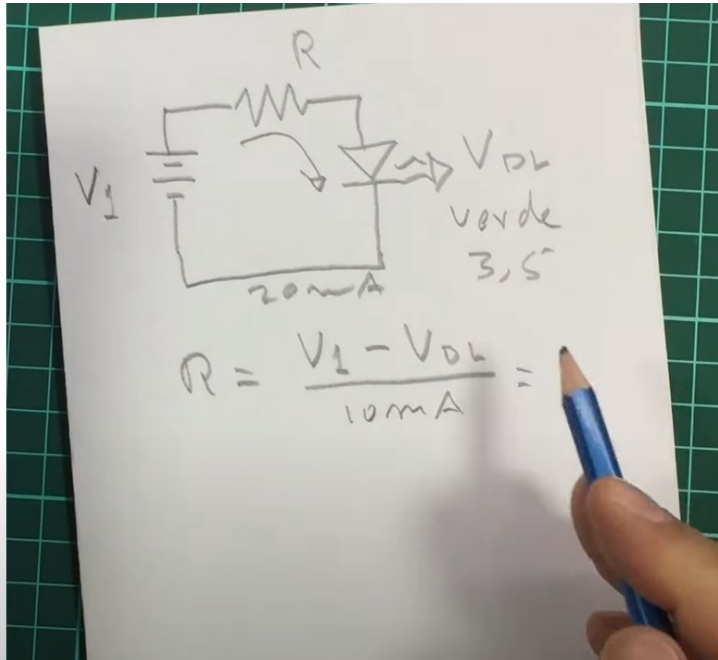 R
V1
VDL
verde
3,5
20mA
R = V1 - VDL =
10mA